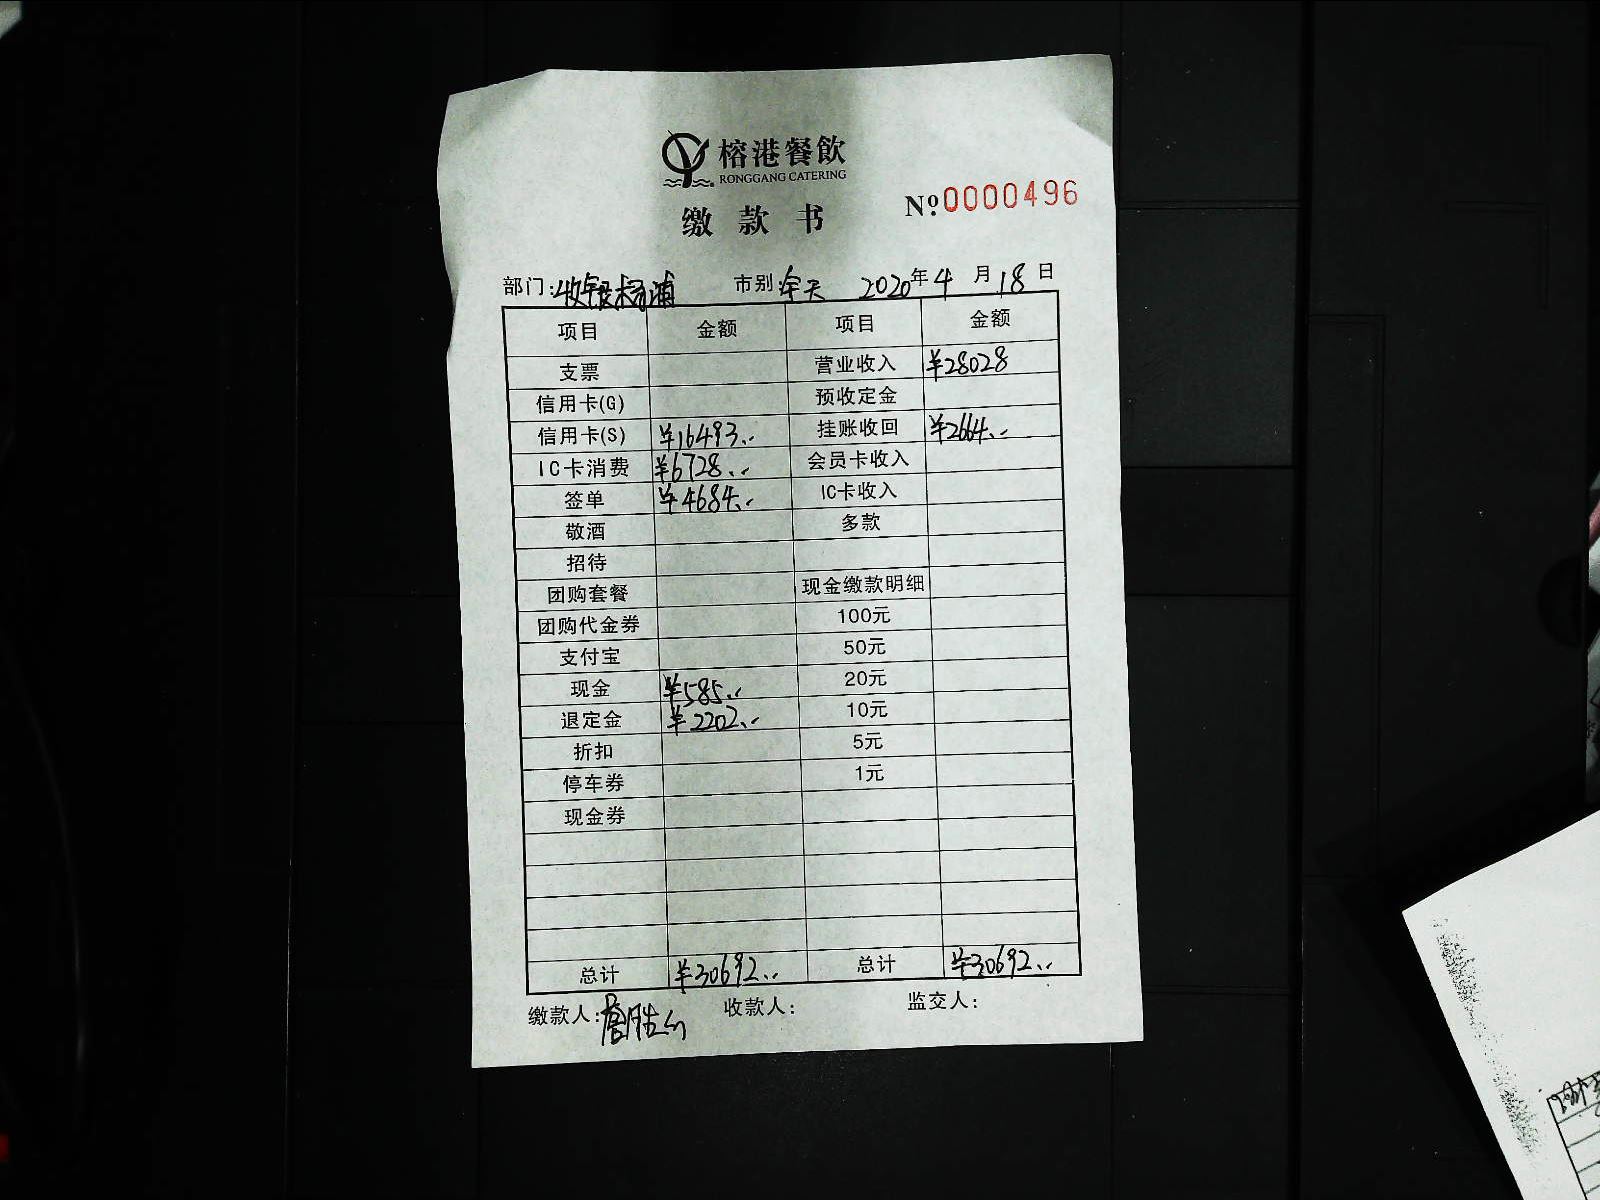 榕港餐飲
RONGGANG CATERING
缴款书
№.0000496
部门:收银杨浦 市别:全天 2020年4月18日
项目 金额 项目 金额
支票 营业收入 ¥28028
信用卡(G) 预收定金
信用卡(S) ¥16493.- 挂账收回 ¥2664.-
IC卡消费 ¥6728.- 会员卡收入
签单 ¥4684.- IC卡收入
敬酒 多款
招待
团购套餐 现金缴款明细
团购代金券 100元
支付宝 50元
现金 ¥585.- 20元
退定金 ¥2202.- 10元
折扣 5元
停车券 1元
现金券
总计 ¥30692.- 总计 ¥30692.-
缴款人: 收款人: 监交人: